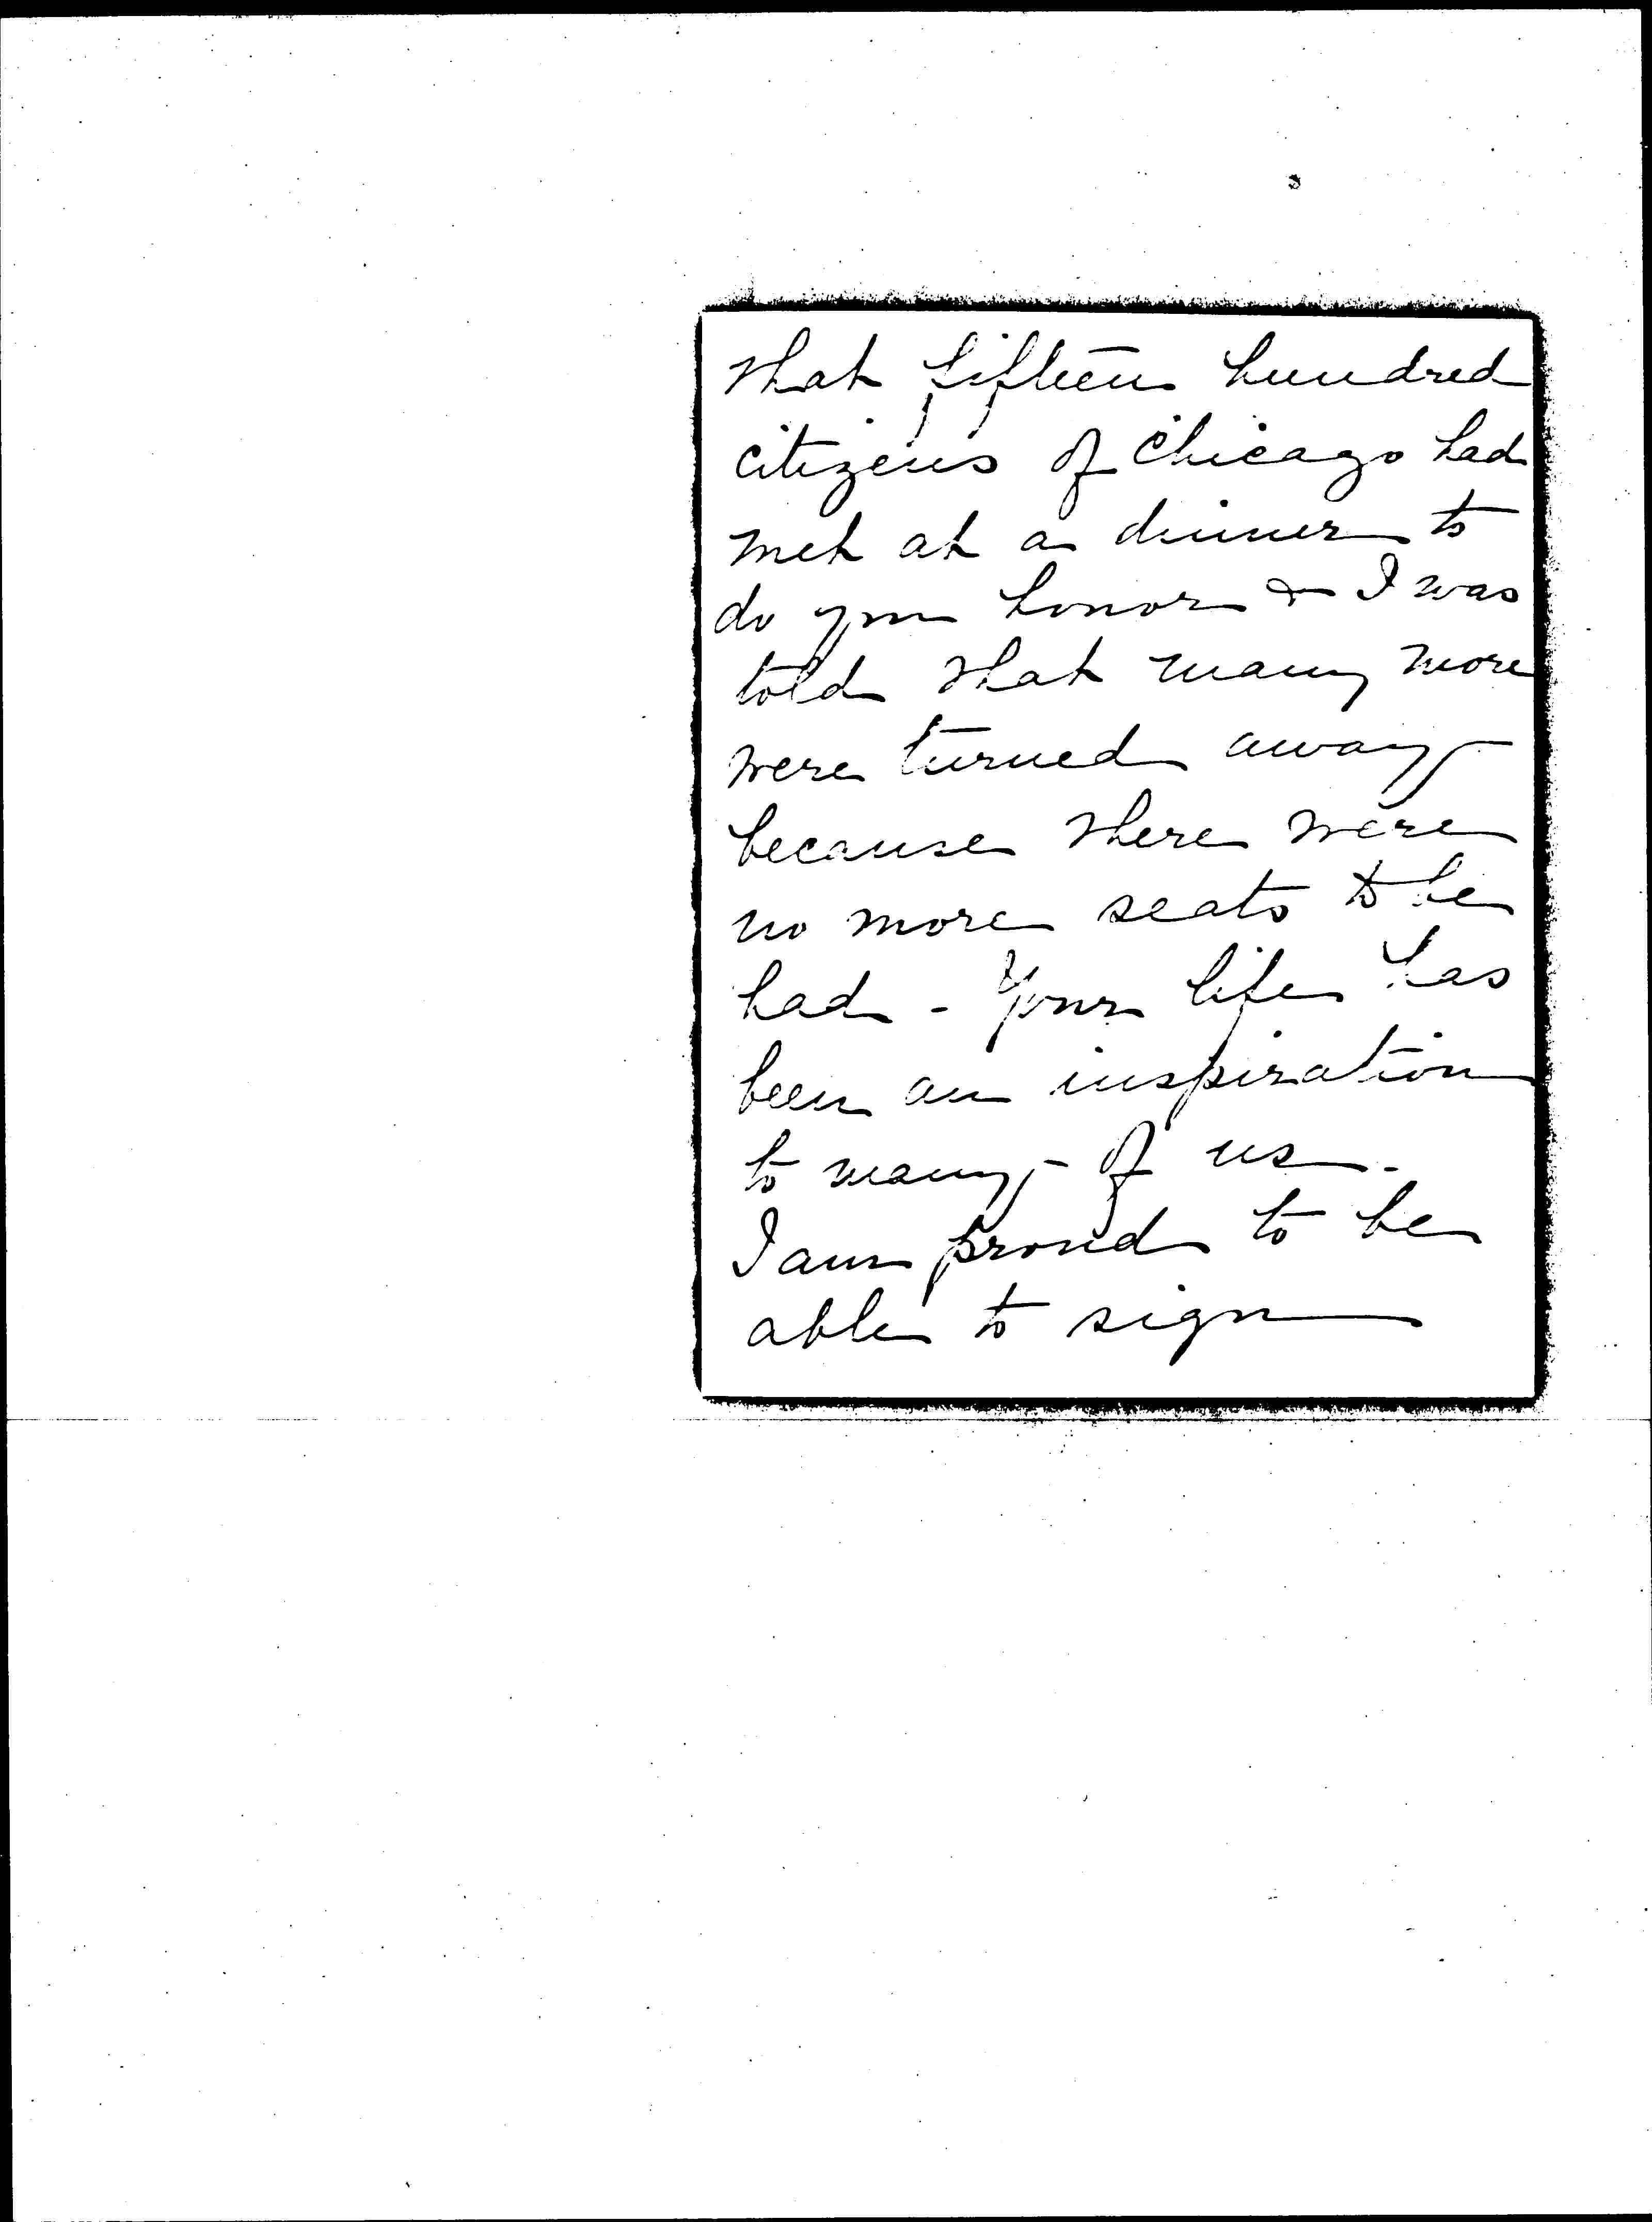 that fifteen hundred
citizens of Chicago had
met at a dinner to
do you honor & I was
told that many more
were turned away
because there were
no more seats to be
had - Your life has
been an inspiration
to many of us.
I am proud to be
able to sign